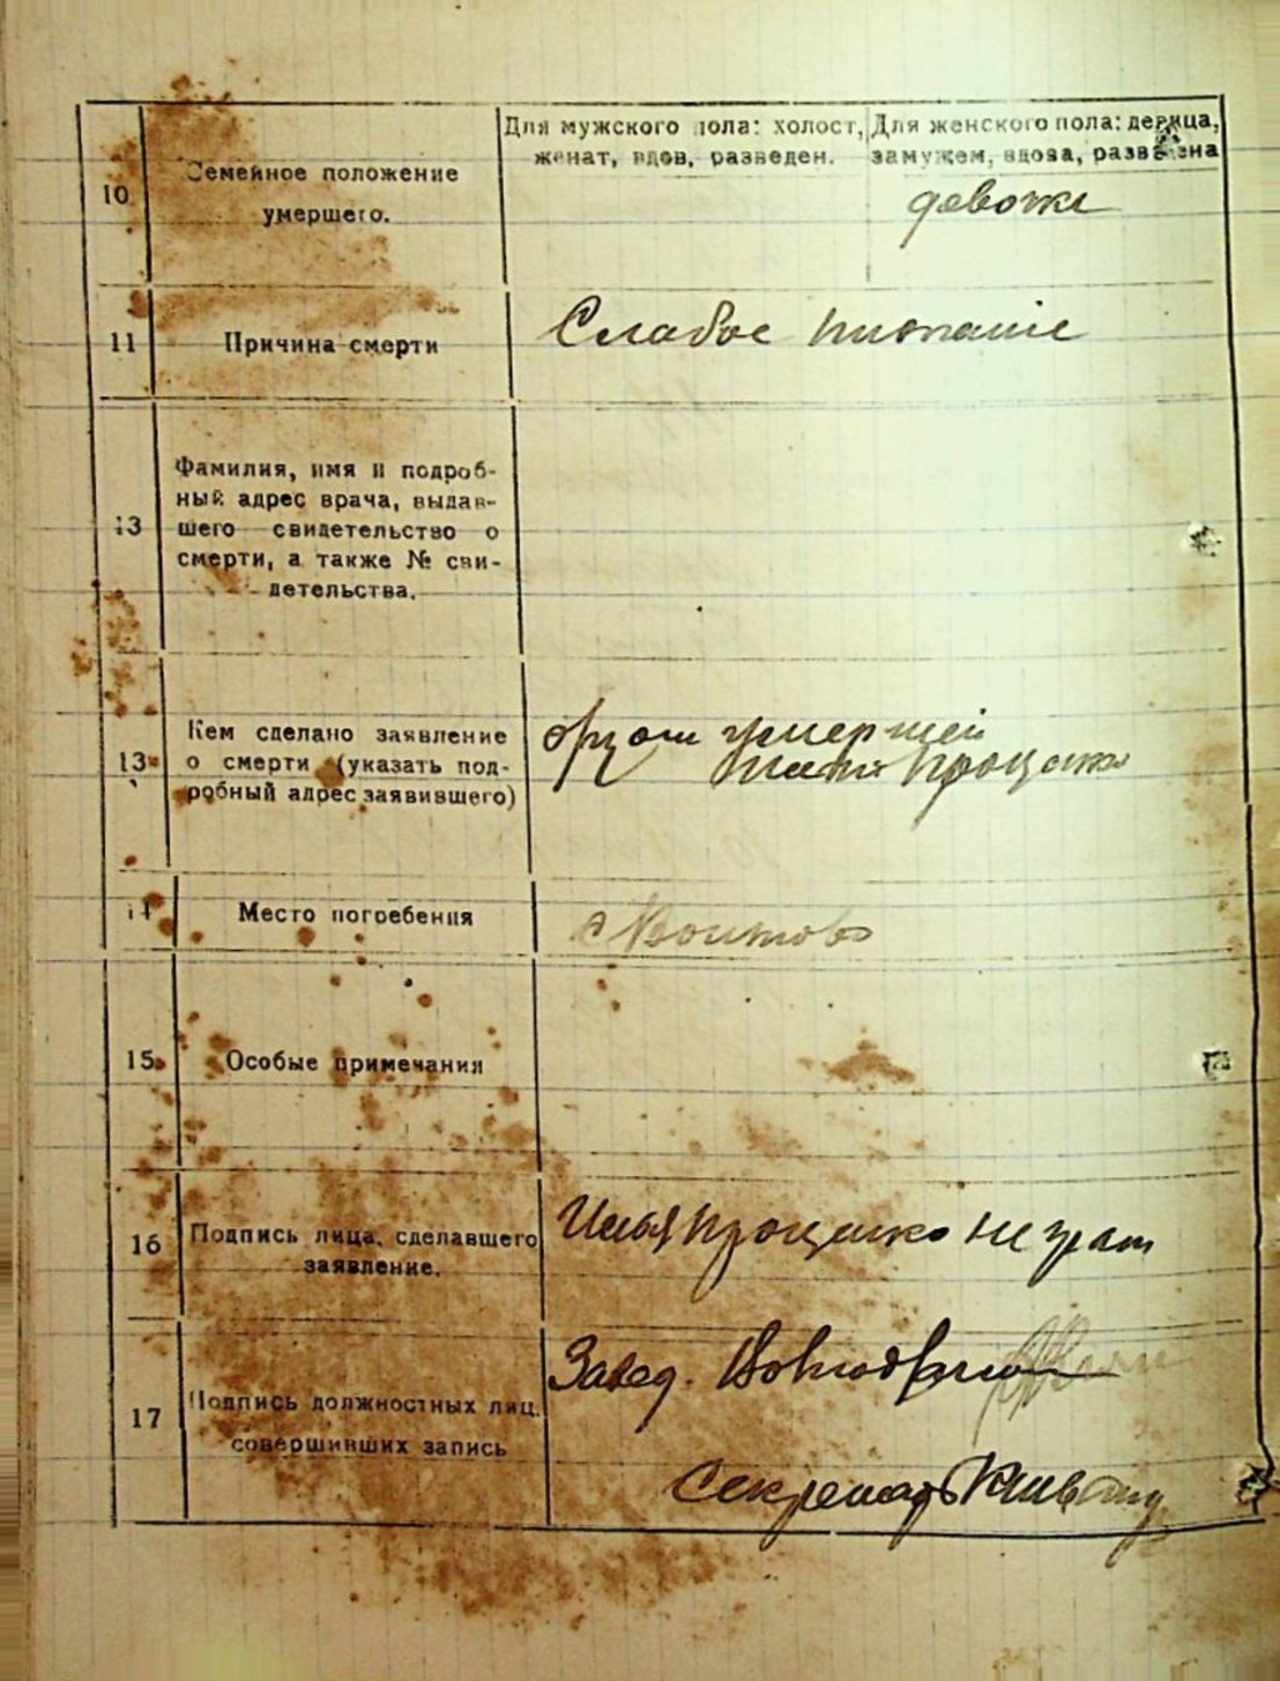 Для мужского пола: холост,
женат, вдов, разведен.
Для женского пола: девица,
замужем, вдова, разведена
10
Семейное положение
умершего.
девочка
11
Причина смерти
Слабое питаніе
13
Фамилия, имя и подроб-
ный адрес врача, выдав-
шего свидетельство о
смерти, а также № сви-
детельства.
13
Кем сделано заявление
о смерти (указать под-
робный адрес заявившего)
умершей
Проценко
14
Место погребения
с
15
Особые примечания
16
Подпись лица, сделавшего
заявление.
Илья Проценко не грам
17
Подпись должностных лиц,
совершивших запись
Завед.
Секретарь